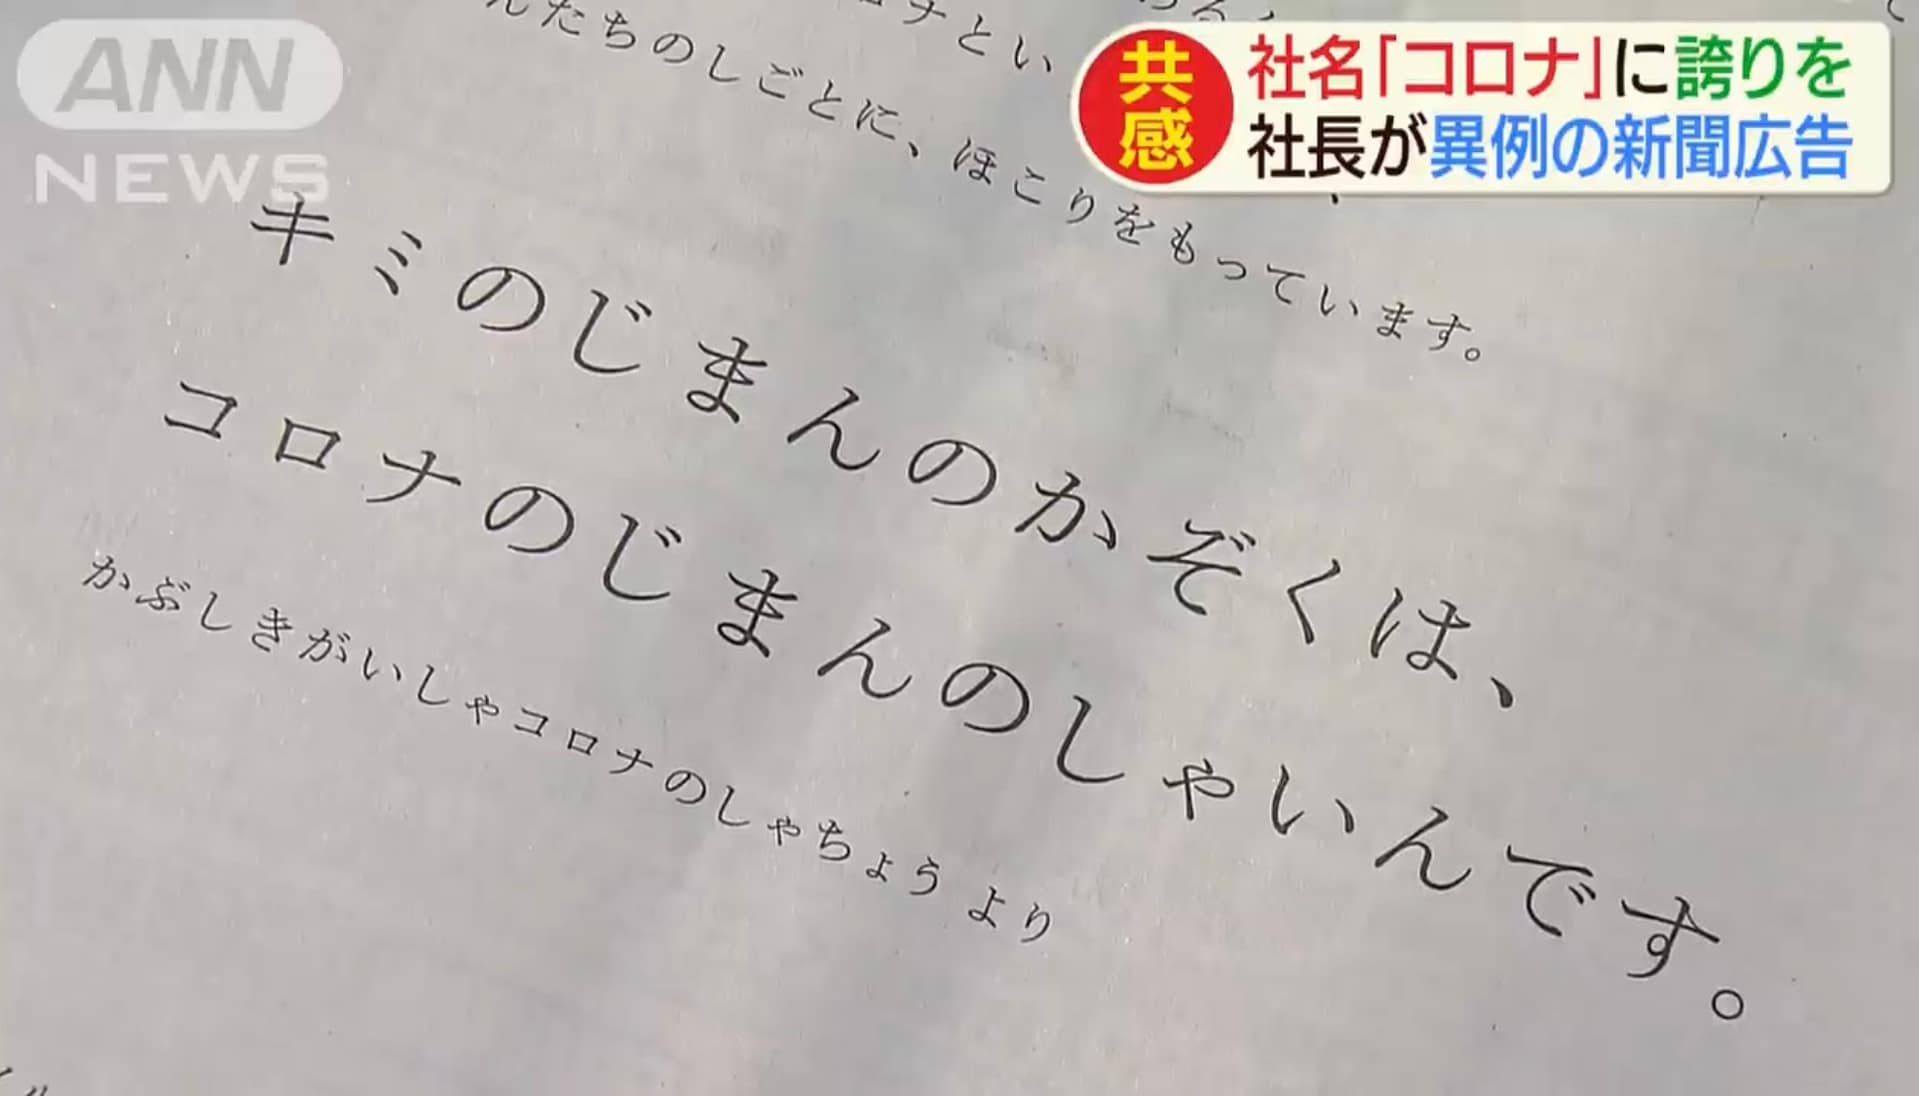 ANN
NEWS
共感
社名「コロナ」に誇りを
社長が異例の新聞広告
ナとい
たちのしごとに、ほこりをもっています。
キミのじまんのかぞくは、
コロナのじまんのしゃいんです。
かぶしきがいしゃコロナのしゃちょう より